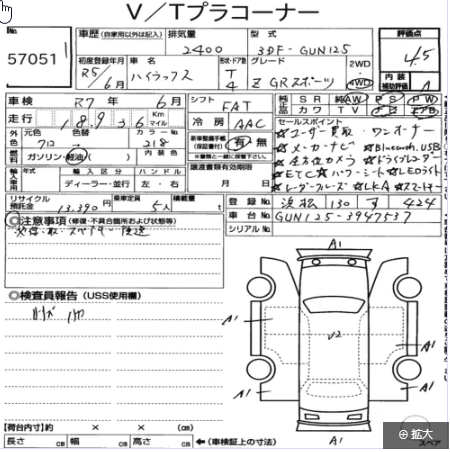 V／Tプラコーナー
No.
57051
車歴 (自家用以外は記入)
排気量
2400
型式
3DF-GUN125
評価点
4.5
初度登録年月
R5/6月
車名
ハイラックス
形状・ドア数
T
4
グレード
Z GRスポーツ
2WD
4WD
内装
補助評価
A
車検 R7年 6月
シフト FAT
SR AW PS PW
カワ TV
走行 18,936 Km マイル
冷房 AAC
セールスポイント
外色 元色 712 色替 カラーNo. 218
新車整備手帳(保証書付) 有・無
☆ユーザー買取 ☆ワンオーナー
☆メーカーナビ ☆Bluetooth, USB
燃料 ガソリン・軽油( ) 内装色
譲渡書類有効期限
月 日
☆全方位カメラ ☆ドライブレコーダー
☆ETC ☆パワーシート ☆LEDライト
☆レーダークルーズ ☆LKA ☆スマートキー
輸入車 使用 年式 輸入区分 ディーラー・並行 ハンドル 左・右
リサイクル預託金 13,390円
乗車定員 5人
積載量 kg
登録No. 浜松 130 す 424
車台No. GUN125-3947537
シリアルNo.
◎注意事項 (修復・不具合箇所および状態等)
取保・取・スペアキー 後送
◎検査員報告 (USS使用欄)
A1
A1
A1
A1
A1
A1
【荷台内寸】約 × ×
長さ cm 幅 cm 高さ cm ←(車検証上の寸法)
スペア
拡大